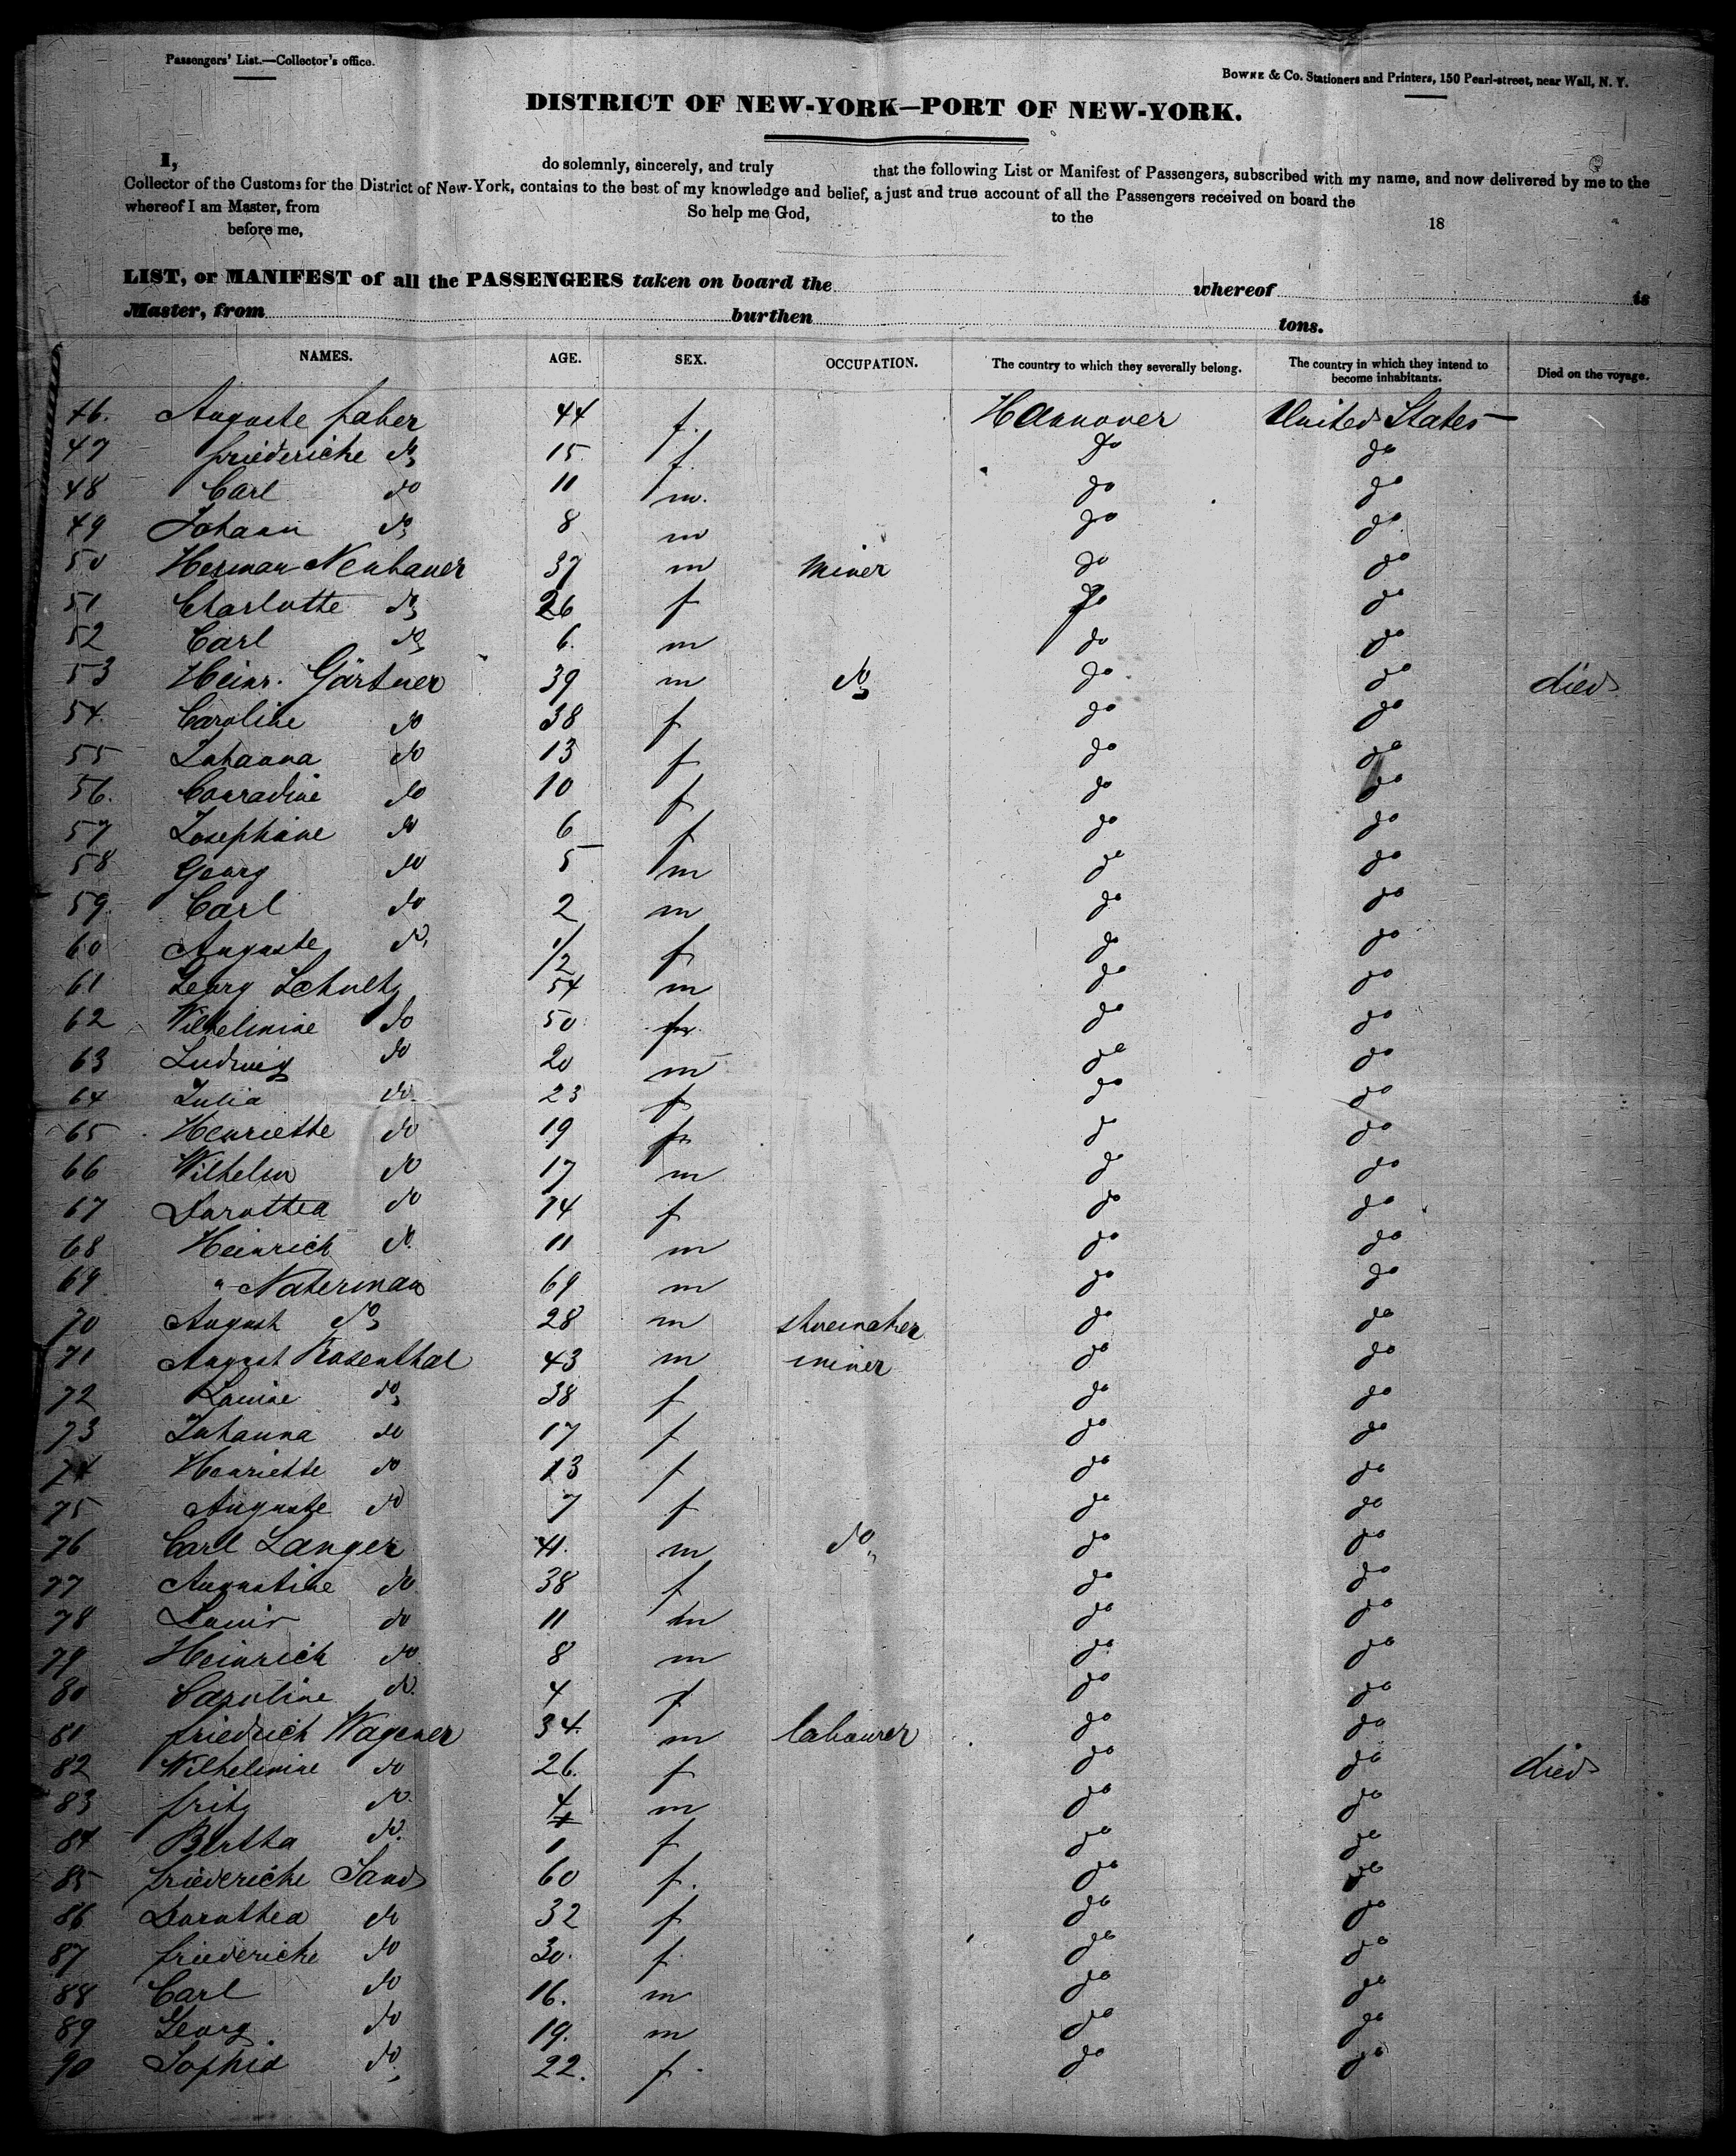 Passengers' List.—Collector's office.
BOWNE & Co. Stationers and Printers, 150 Pearl-street, near Wall, N. Y.
DISTRICT OF NEW-YORK—PORT OF NEW-YORK.
I, do solemnly, sincerely, and truly that the following List or Manifest of Passengers, subscribed with my name, and now delivered by me to the
Collector of the Customs for the District of New-York, contains to the best of my knowledge and belief, a just and true account of all the Passengers received on board the
whereof I am Master, from So help me God, to the 18
before me,
LIST, or MANIFEST of all the PASSENGERS taken on board the whereof is
Master, from burthen tons.
NAMES. AGE. SEX. OCCUPATION. The country to which they severally belong. The country in which they intend to become inhabitants. Died on the voyage.
46. Auguste faber 44 f. Hannover United States
47 friederiche do 15 f do do
48 Carl do 11 m. do do
49 Johann do 8 m do do
50 Herman Neuhauer 37 m miner do do
51 Charlotte do 26 f do do
52 Carl do 6. m do do
53 Heinr. Gärtner 39 m do do do died
54. Caroline do 38 f do do
55 Johanna do 13 f do do
56. Conradine do 10 f do do
57 Josephine do 6 f do do
58 Georg do 5 m do do
59. Carl do 2 m do do
60 Auguste do 1/2 f do do
61 Georg Schultz 54 m do do
62 Wilhelmine do 50 f do do
63 Ludwig do 20 m do do
64 Julia do 23 f do do
65 Henriette do 19 f do do
66 Wilhelm do 17 m do do
67 Dorottea do 14 f do do
68 Heinrich do 11 m do do
69. " Naterman 69 m do do
70 August do 28 m shoemaker do do
71 August Rosenthal 43 m miner do do
72 Louise do 38 f do do
73 Johanna do 17 f do do
74 Henriette do 13 f do do
75 Auguste do 7 f do do
76 Carl Langer 41. m do do do
77 Augustine do 38 f do do
78 Louis do 11 m do do
79 Heinrich do 8 m do do
80 Caroline do 4 f do do
81 friedrich Wagener 34. m labourer do do
82 Wilhelmine do 26. f do do died
83 fritz do 4 m do do
84 Bertha do 1 f do do
85 friederiche Sand 60 f. do do
86 Dorothea do 32 f do do
87 friederiche do 30. f do do
88 Carl do 16. m do do
89 Georg do 19. m do do
90 Sophia do 22. f. do do